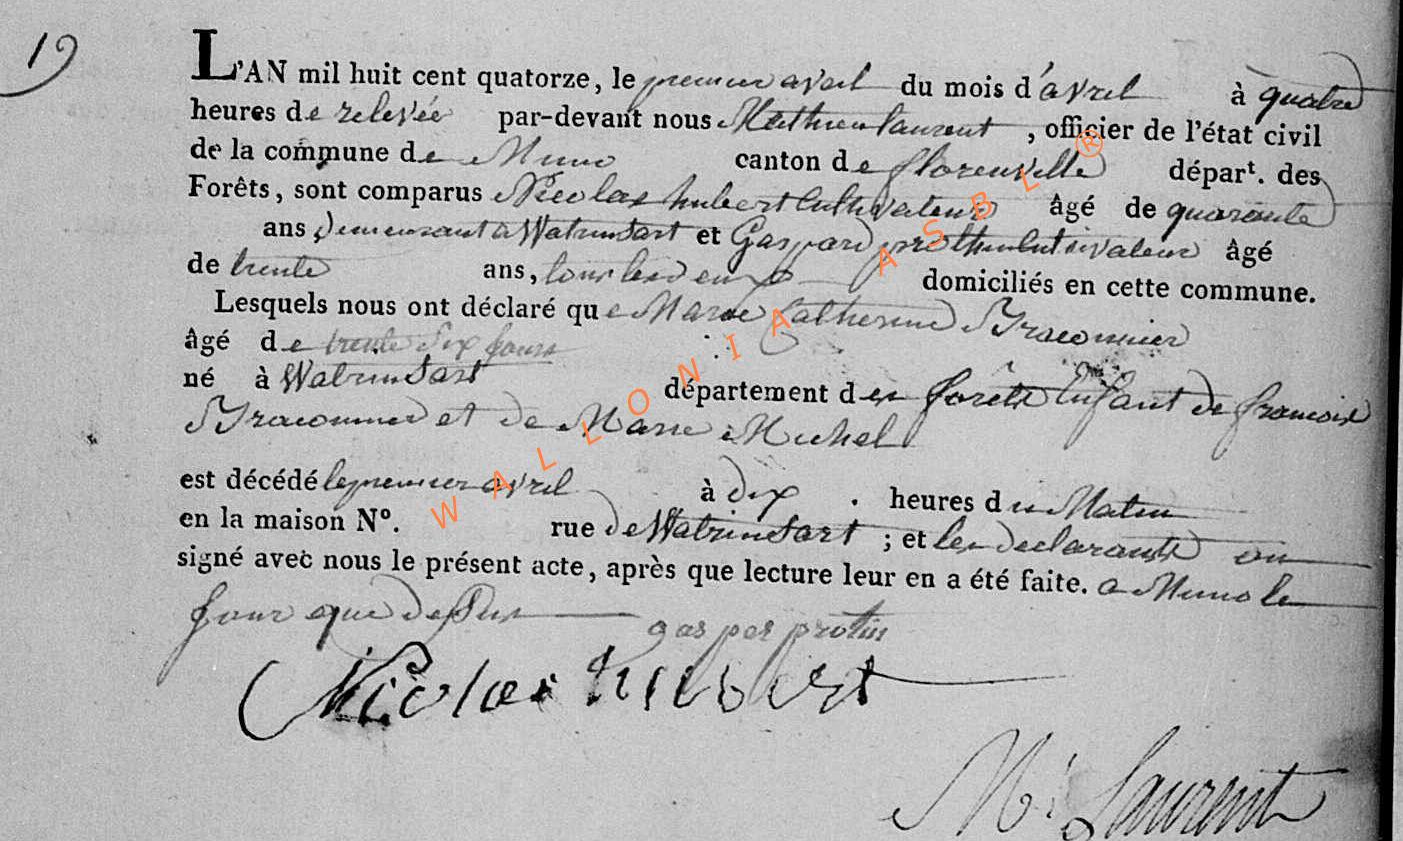 19
L'AN mil huit cent quatorze, le premier avril du mois d'avril à quatre
heures de relevée par-devant nous Mathieu laurent, officier de l'état civil
de la commune de Muno canton de florenville départ. des
Forêts, sont comparus Nicolas hubert Cultivateur âgé de quarante
ans demeurant à Watrinsart et Gaspard protin Cultivateur âgé
de trente ans, tous les deux domiciliés en cette commune.
Lesquels nous ont déclaré que Marie Catherine Braconnier
âgé de trente Six jours
né à Watrinsart département des forêts Enfant de francois
Braconnier et de Marie Michel
est décédé le premier avril à dix heures du Matin
en la maison N°. rue de Watrinsart ; et les declarants on
signé avec nous le présent acte, après que lecture leur en a été faite. a Muno le
jour que dessus
gasper protin
Nicolas hubert
M. Laurent
WALLONIA ASBL ®